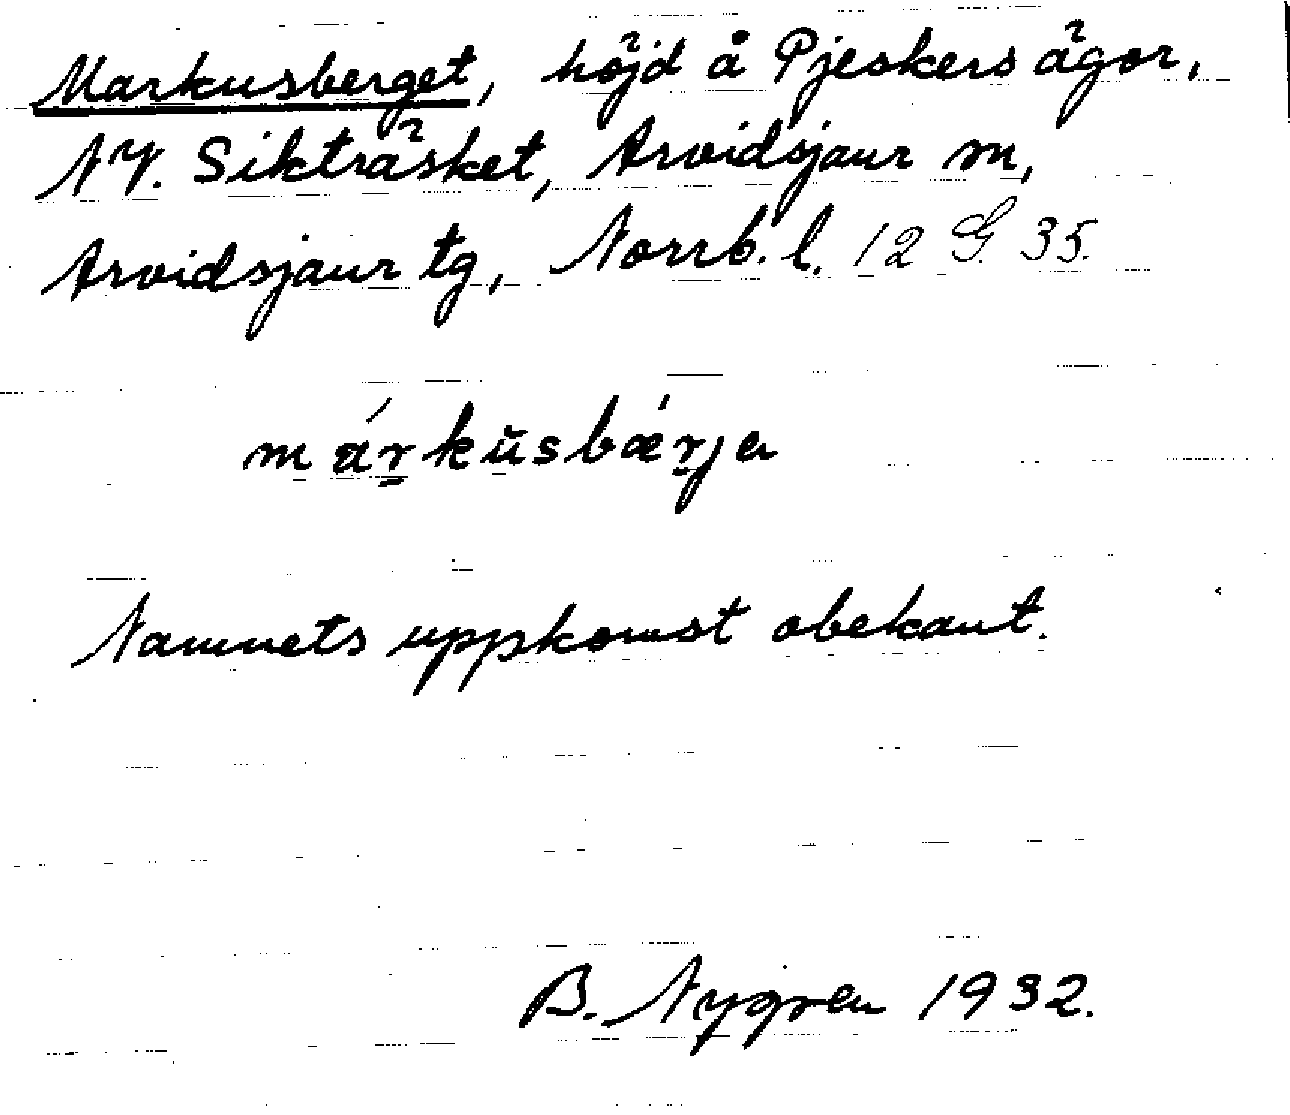 Markusberget, höjd å Pjeskers ägor,
NV. Sikträsket, Arvidsjaur sn,
Arvidsjaur tg, Norrb. l. 12 G. 35.
má̱rkŭsbǽrja
Namnets uppkomst obekant.
B. Nygren 1932.